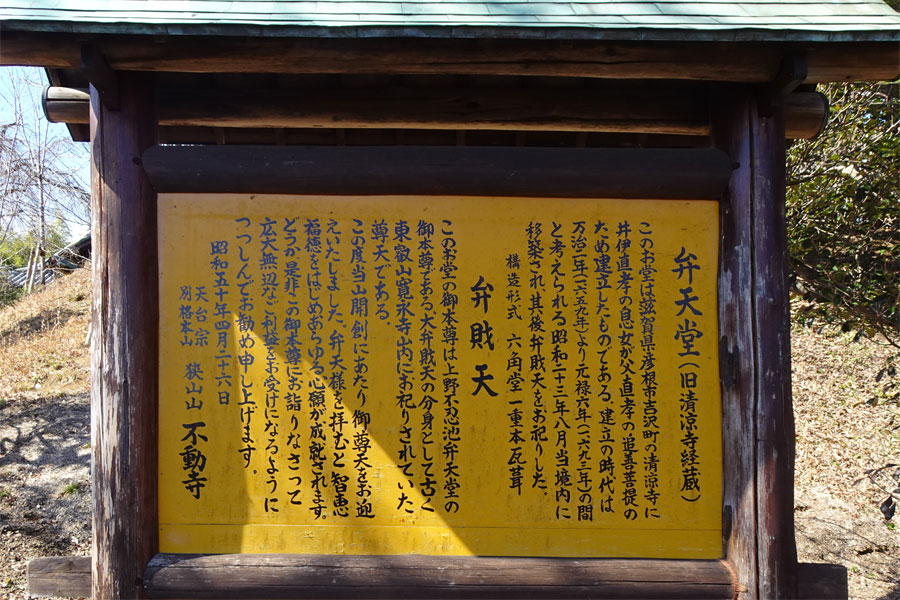 弁天堂(旧清凉寺経蔵)
このお堂は滋賀県彦根市吉沢町の清凉寺に
井伊直孝の息女が父直孝の追善菩提の
ため建立したものである。建立の時代は
万治二年(一六五九年)より元禄六年(一六九三年)の間
と考えられる昭和二十三年八月当境内に
移築され、其後弁財天をお祀りした。
構造形式 六角堂一重本瓦葺
弁財天
このお堂の御本尊は上野不忍池弁天堂の
御本尊である大弁財天の分身として古く
東叡山寛永寺山内にお祀りされていた
尊天である。
この度当山開創にあたり御尊天をお迎
えいたしました。弁天様を拝むと智恵
福徳をはじめあらゆる心願が成就されます。
どうか是非この御本尊にお詣りなさって
広大無辺なご利益をお受けになるように
つつしんでお勧め申し上げます。
昭和五十年四月二十六日
天台宗
別格本山 狭山山 不動寺